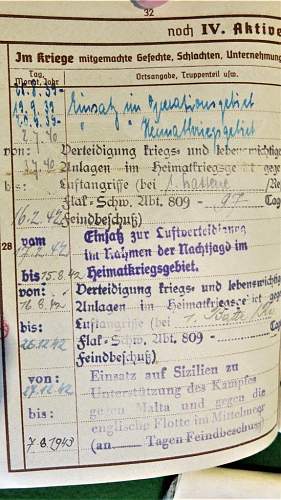 32
noch IV. Aktive
Im Kriege mitgemachte Gefechte, Schlachten, Unternehmung
Tag, Monat, Jahr
Ortsangabe, Truppenteil usw.
19.9.39 Einsatz im Operationsgebiet
20.9.39- " " Heimatkriegsgebiet
2.7.40
von: Verteidigung kriegs- und lebenswichtige
3.7.40 Anlagen im Heimatkriegsge iet gege
bis: Luftangriffe (bei 1. Batterie /Re
Flak-Schw. Abt. 809 - 97 Tag
16.2.42 Feindbeschuß)
28
vom Einsatz zur Luftverteidigung
17.2.42 im Rahmen der Nachtjagd im
bis 15.8.42 Heimatkriegsgebiet.
von: Verteidigung kriegs- und lebenswichtig
16.8.42 Anlagen im Heimatkriegsge iet gege
bis: Luftangriffe (bei 1. Battr.
26.12.42 Flak-Schw. Abt. 809 - Ta
Feindbeschuß)
von: Einsatz auf Sizilien zu
27.12.42 Unterstützung des Kampfes
gegen Malta und gegen die
bis: englische Flotte im Mittelmeer
7.8.1943 (an Tagen Feindbeschuß)